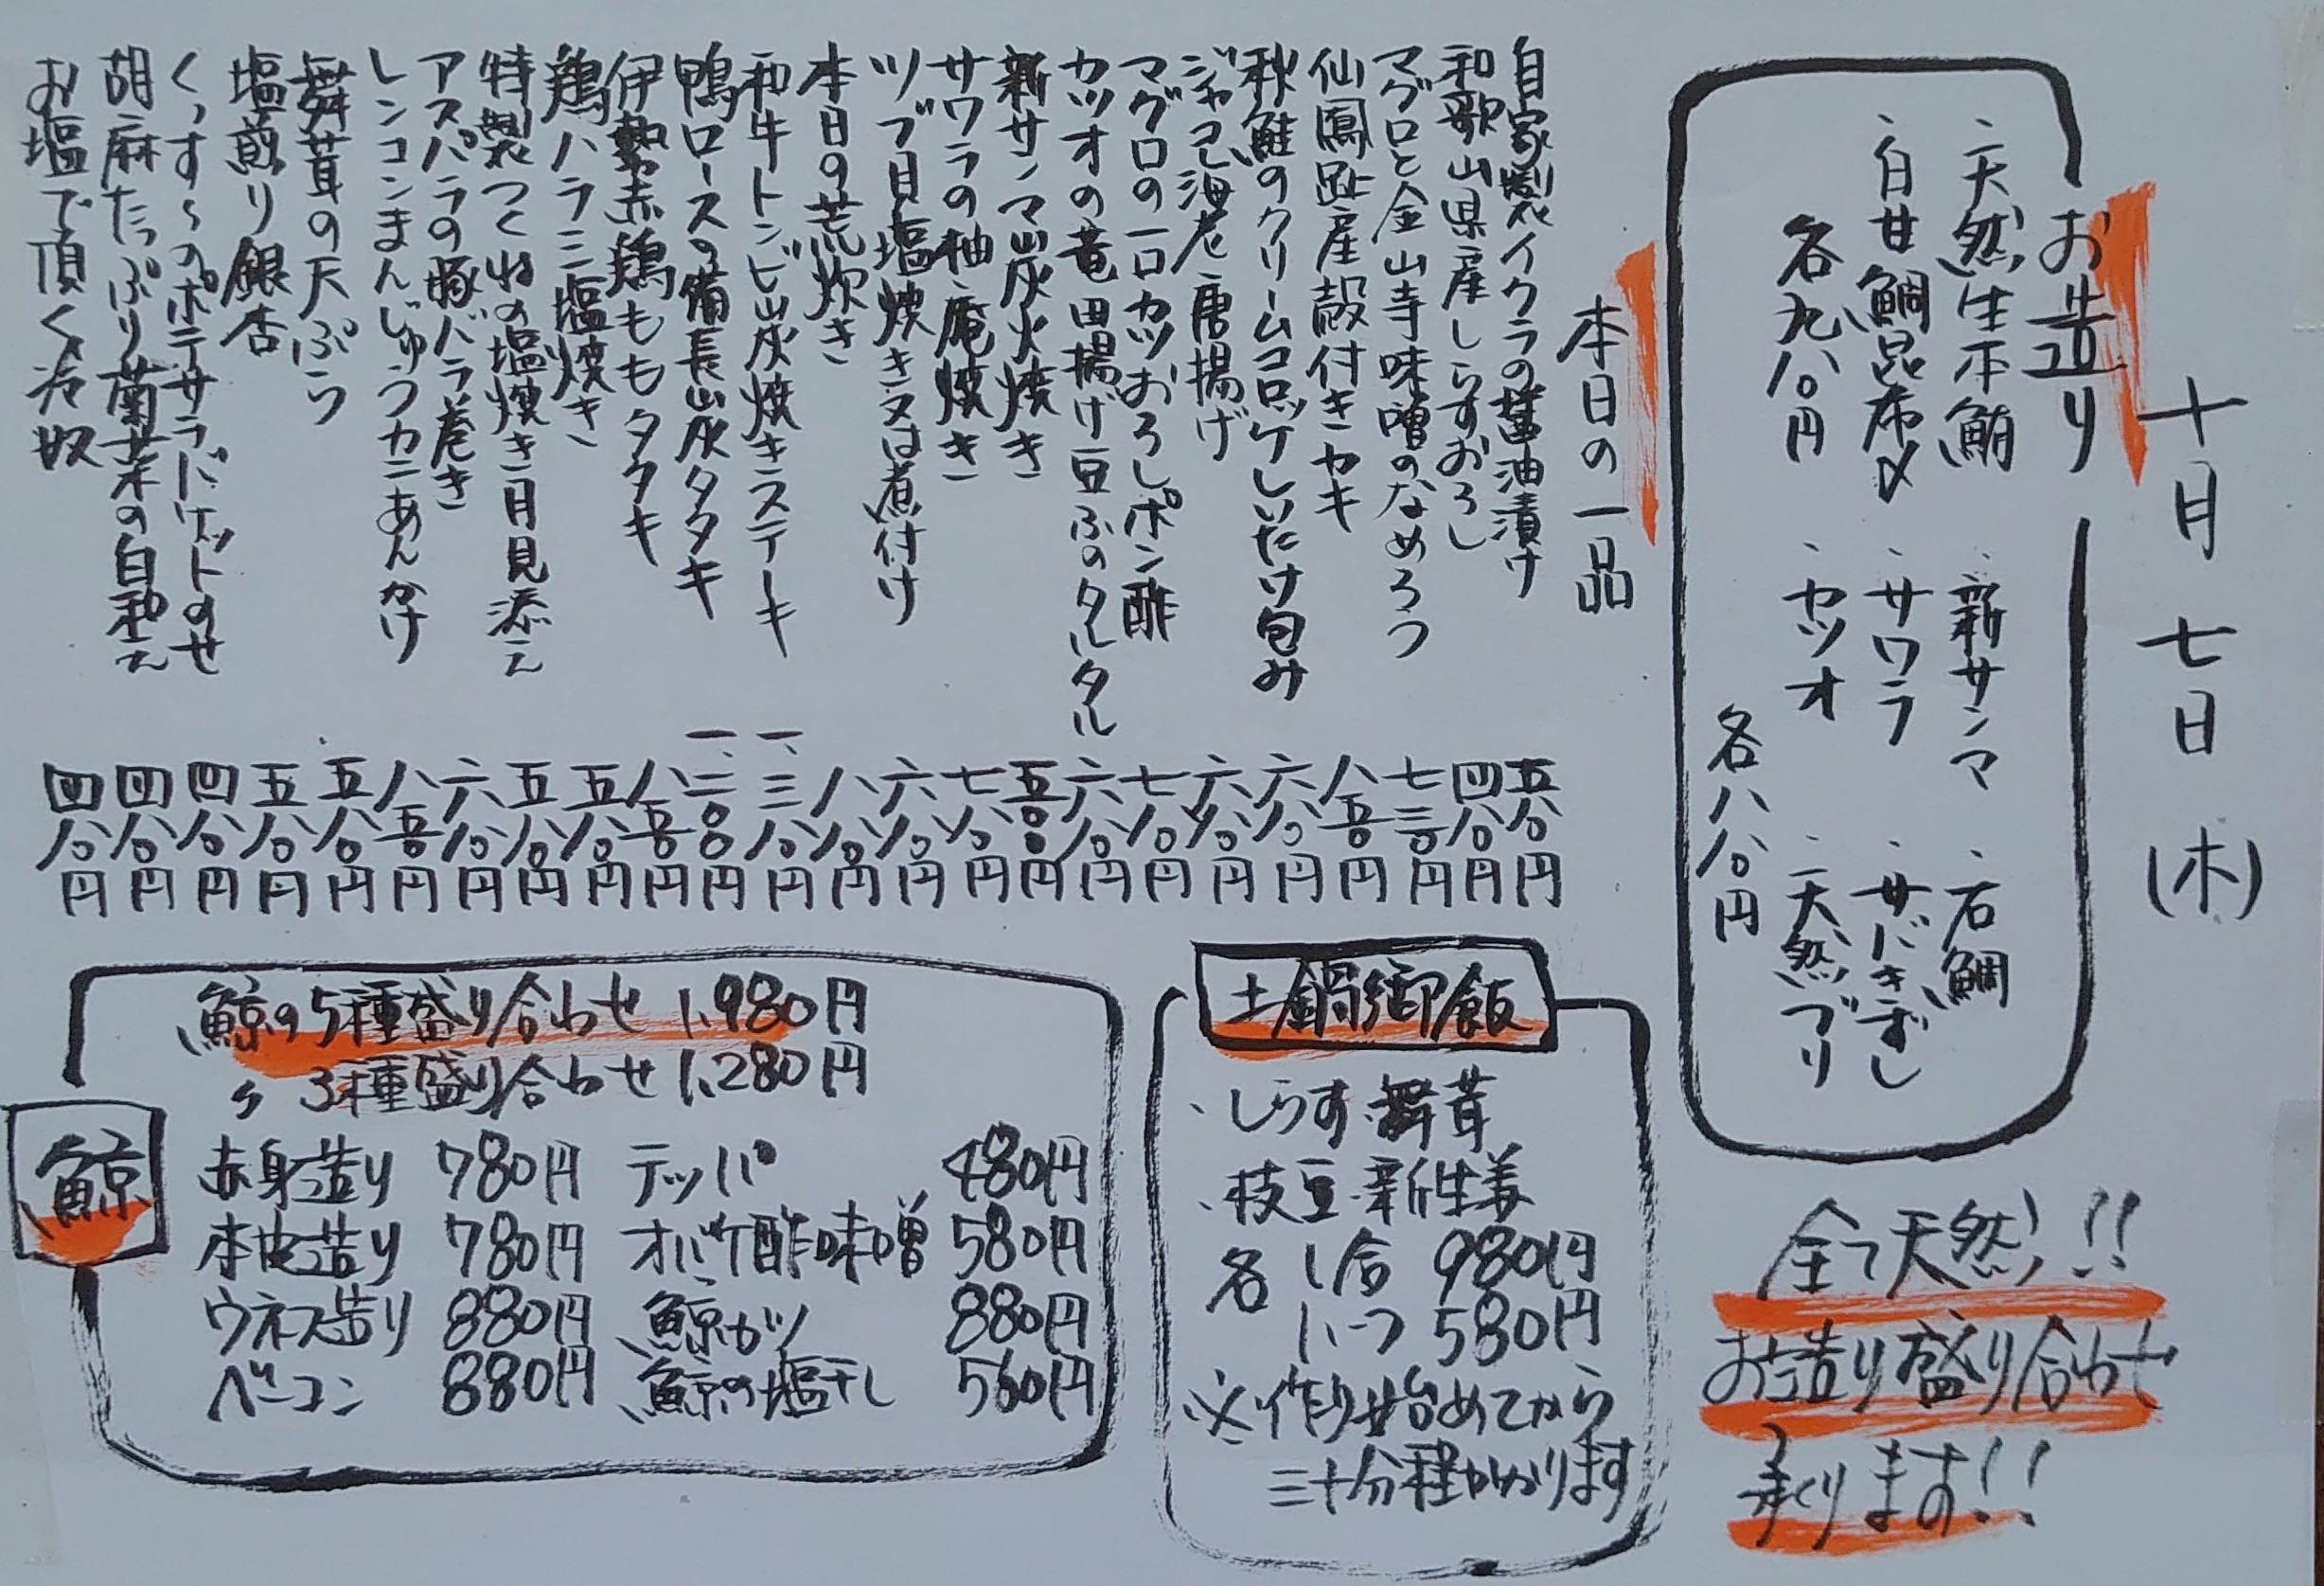 十月七日(木)
お造り
・天然生本鮪
・白甘鯛昆布〆
各九八〇円
・新サンマ
・サワラ
・カツオ
・石鯛
・サバきずし
・天然ブリ
各八八〇円
全て天然!!
お造り盛り合わせ
承ります!!
本日の一品
自家製イクラの醤油漬け 五八〇円
和歌山県産しらすおろし 四八〇円
マグロと金山寺味噌のなめろう 七三〇円
仙鳳趾産殻付きカキ 八五〇円
秋鮭のクリームコロッケしいたけ包み 六八〇円
ジャコ海老唐揚げ 六八〇円
マグロの一口カツおろしポン酢 七八〇円
カツオの竜田揚げ豆ふのタルタル 六八〇円
新サンマ炭火焼き 五〇〇円
サワラの柚庵焼き 七八〇円
ツブ貝塩焼き又は煮付け 六八〇円
本日の荒炊き 八八〇円
和牛トンビ炭焼きステーキ 一、三八〇円
鴨ロースの備長炭タタキ 一、二〇〇円
伊勢赤鶏ももタタキ 八五〇円
鶏ハラミ塩焼き 五八〇円
特製つくねの塩焼き月見添え 五八〇円
アスパラの豚バラ巻き 六八〇円
レンコンまんじゅうカニあんかけ 八五〇円
舞茸の天ぷら 五八〇円
塩煎り銀杏 五八〇円
くっす〜のポテサラバケットのせ 四八〇円
胡麻たっぷり菊菜の白和え 四八〇円
お塩で頂く冷奴 四八〇円
土鍋御飯
・しらす・舞茸
・枝豆・新生姜
各 1合 980円
ハーフ 580円
※作り始めてから
三十分程かかります
鯨
鯨の5種盛り合わせ 1,980円
〃 3種盛り合わせ 1,280円
赤身造り 780円 テッパ 480円
本皮造り 780円 オバケ酢味噌 580円
ウネス造り 880円 鯨カツ 880円
ベーコン 880円 鯨の塩干し 560円